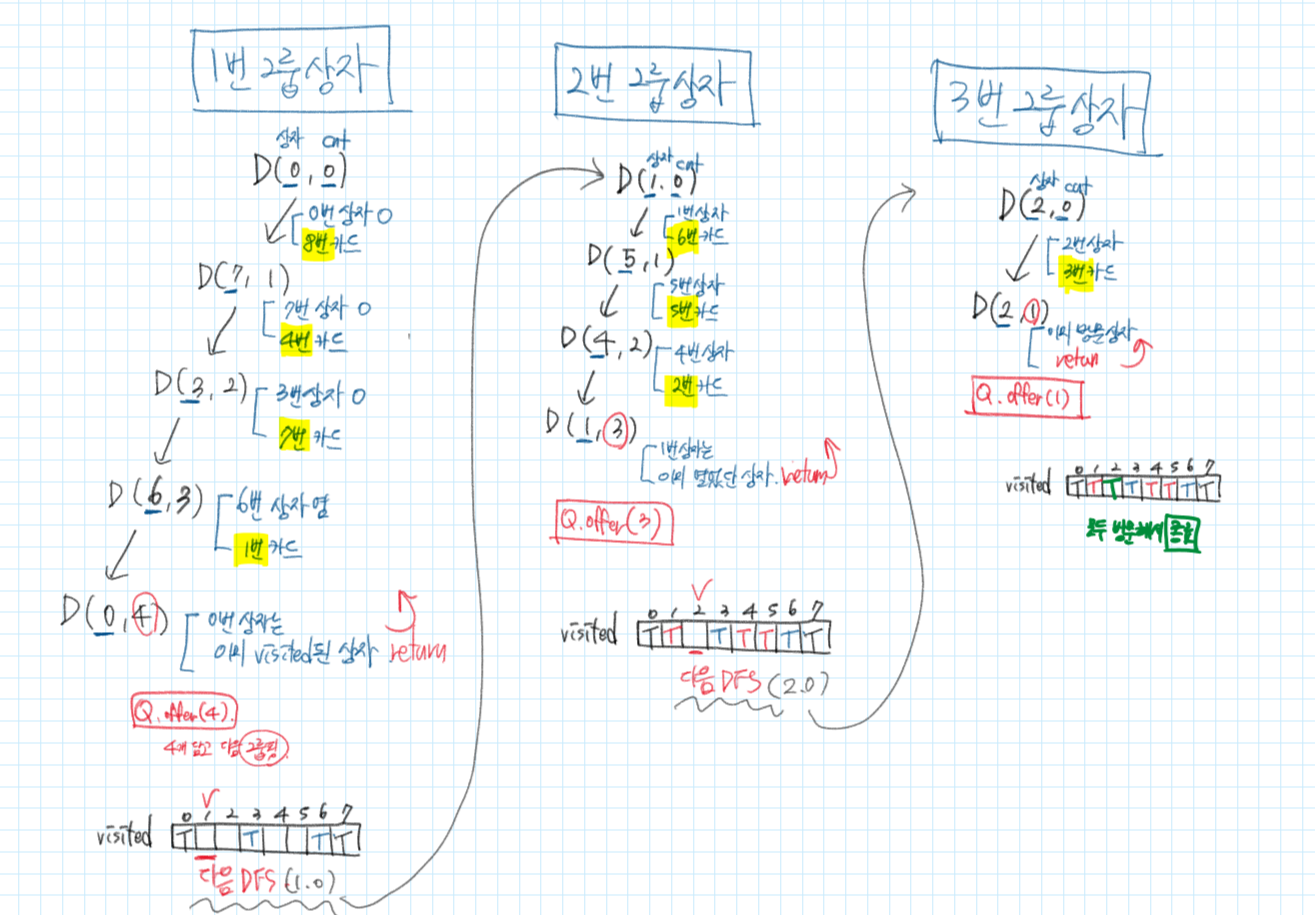 1번 그룹상자
상자 cnt
D(0,0)
0번상자 0
8번 카드
D(7,1)
7번 상자 0
4번 카드
D(3,2)
3번상자 0
7번 카드
D(6,3)
6번 상자 열
1번 카드
D(0,4)
0번 상자는
이미 visited된 상자 return
Q.offer(4).
4개 담고 다음 그룹핑.
0 1 2 3 4 5 6 7
visited T T T T
다음 DFS (1.0)
2번 그룹상자
상자 cnt
D(1.0)
1번상자
6번 카드
D(5,1)
5번상자
5번 카드
D(4,2)
4번상자
2번 카드
D(1,3)
1번상자는
이미 열었던 상자. return
Q.offer(3)
0 1 2 3 4 5 6 7
visited T T T T T T T
다음 DFS (2.0)
3번 그룹상자
상자 cnt
D(2,0)
2번상자
3번 카드
D(2,1)
이미 방문상자
retun
Q.offer(1)
0 1 2 3 4 5 6 7
visited T T T T T T T T
모두 방문해서 종료